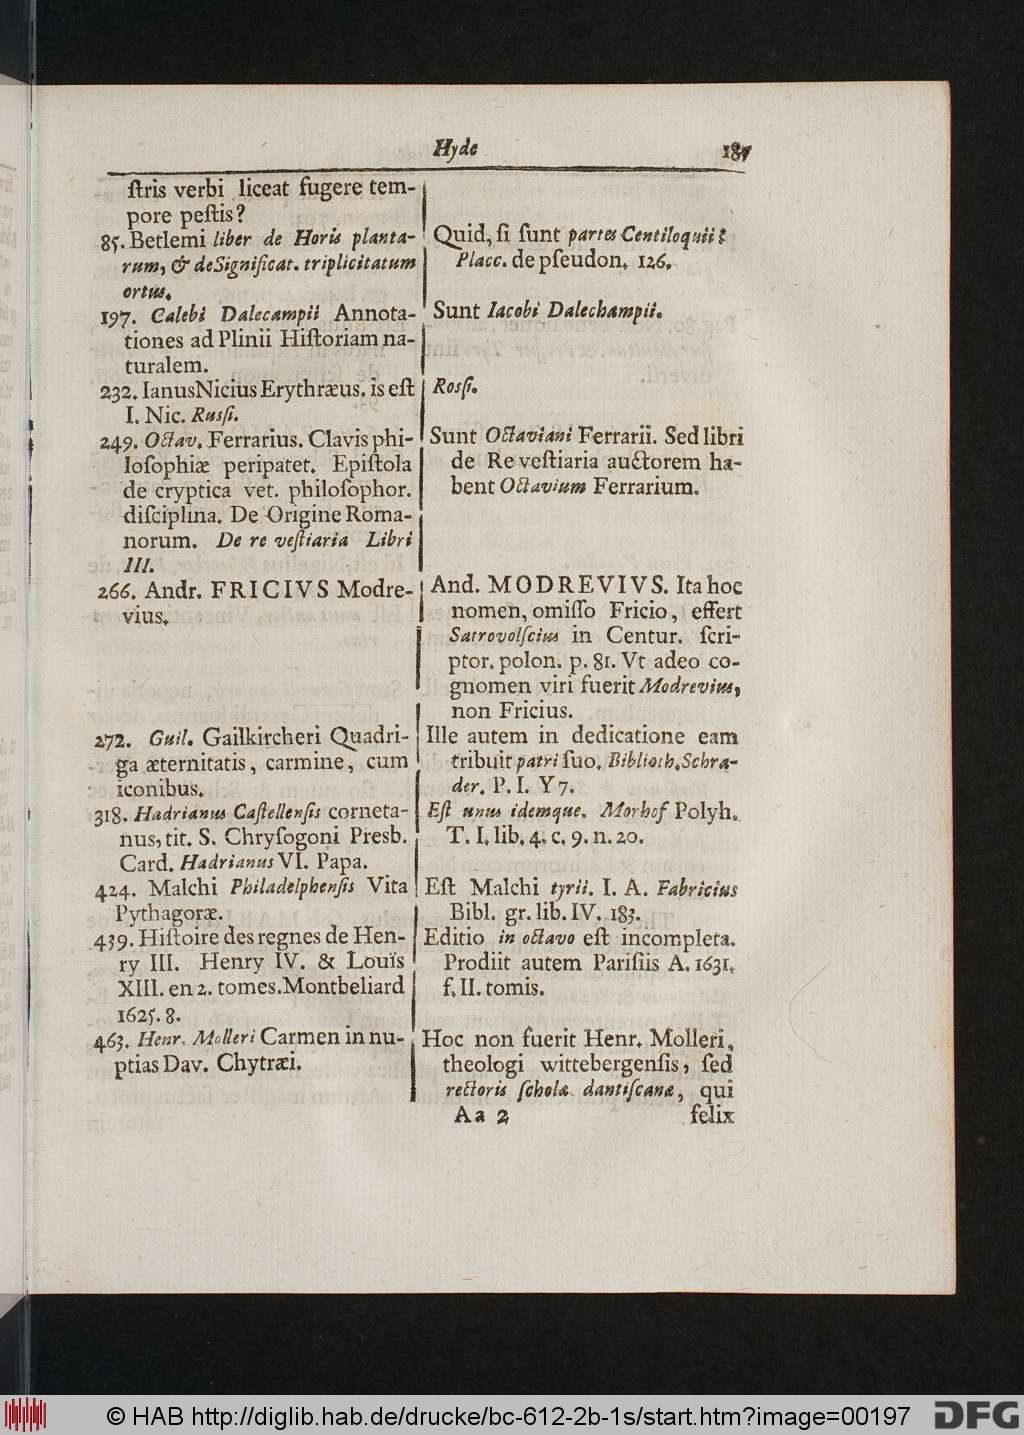 Hyde 187
ſtris verbi liceat fugere tem-
pore peſtis?
85. Betlemi liber de Horis planta-
rum, & de Significat. triplicitatum
ortus.
Quid, ſi ſunt partes Centiloquii?
Placc. de pſeudon. 126.
197. Calebi Dalecampii Annota-
tiones ad Plinii Hiſtoriam na-
turalem.
Sunt Iacobi Dalechampii.
232. Ianus Nicius Erythræus. is eſt
I. Nic. Ruſſi.
Roſſi.
249. Octav. Ferrarius. Clavis phi-
loſophiæ peripatet. Epiſtola
de cryptica vet. philoſophor.
diſciplina. De Origine Roma-
norum. De re veſtiaria Libri
III.
Sunt Octaviani Ferrarii. Sed libri
de Re veſtiaria auctorem ha-
bent Octavium Ferrarium.
266. Andr. FRICIVS Modre-
vius.
And. MODREVIVS. Ita hoc
nomen, omiſſo Fricio, effert
Satrovolſcius in Centur. ſcri-
ptor. polon. p. 81. Vt adeo co-
gnomen viri fuerit Modrevius,
non Fricius.
272. Guil. Gailkircheri Quadri-
ga æternitatis, carmine, cum
iconibus.
Ille autem in dedicatione eam
tribuit patri ſuo. Biblioth. Schra-
der. P. I. Y 7.
318. Hadrianus Caſtellenſis corneta-
nus, tit. S. Chryſogoni Presb.
Card. Hadrianus VI. Papa.
Eſt unus idemque. Morhof Polyh.
T. I. lib. 4. c. 9. n. 20.
424. Malchi Philadelphenſis Vita
Pythagoræ.
Eſt Malchi tyrii. I. A. Fabricius
Bibl. gr. lib. IV. 183.
439. Hiſtoire des regnes de Hen-
ry III. Henry IV. & Louïs
XIII. en 2. tomes. Montbeliard
1625. 8.
Editio in octavo eſt incompleta.
Prodiit autem Pariſiis A. 1631.
f. II. tomis.
463. Henr. Molleri Carmen in nu-
ptias Dav. Chytræi.
Hoc non fuerit Henr. Molleri,
theologi wittebergenſis, ſed
rectoris ſcholæ dantiſcanæ, qui
Aa 2 felix
© HAB http://diglib.hab.de/drucke/bc-612-2b-1s/start.htm?image=00197 DFG